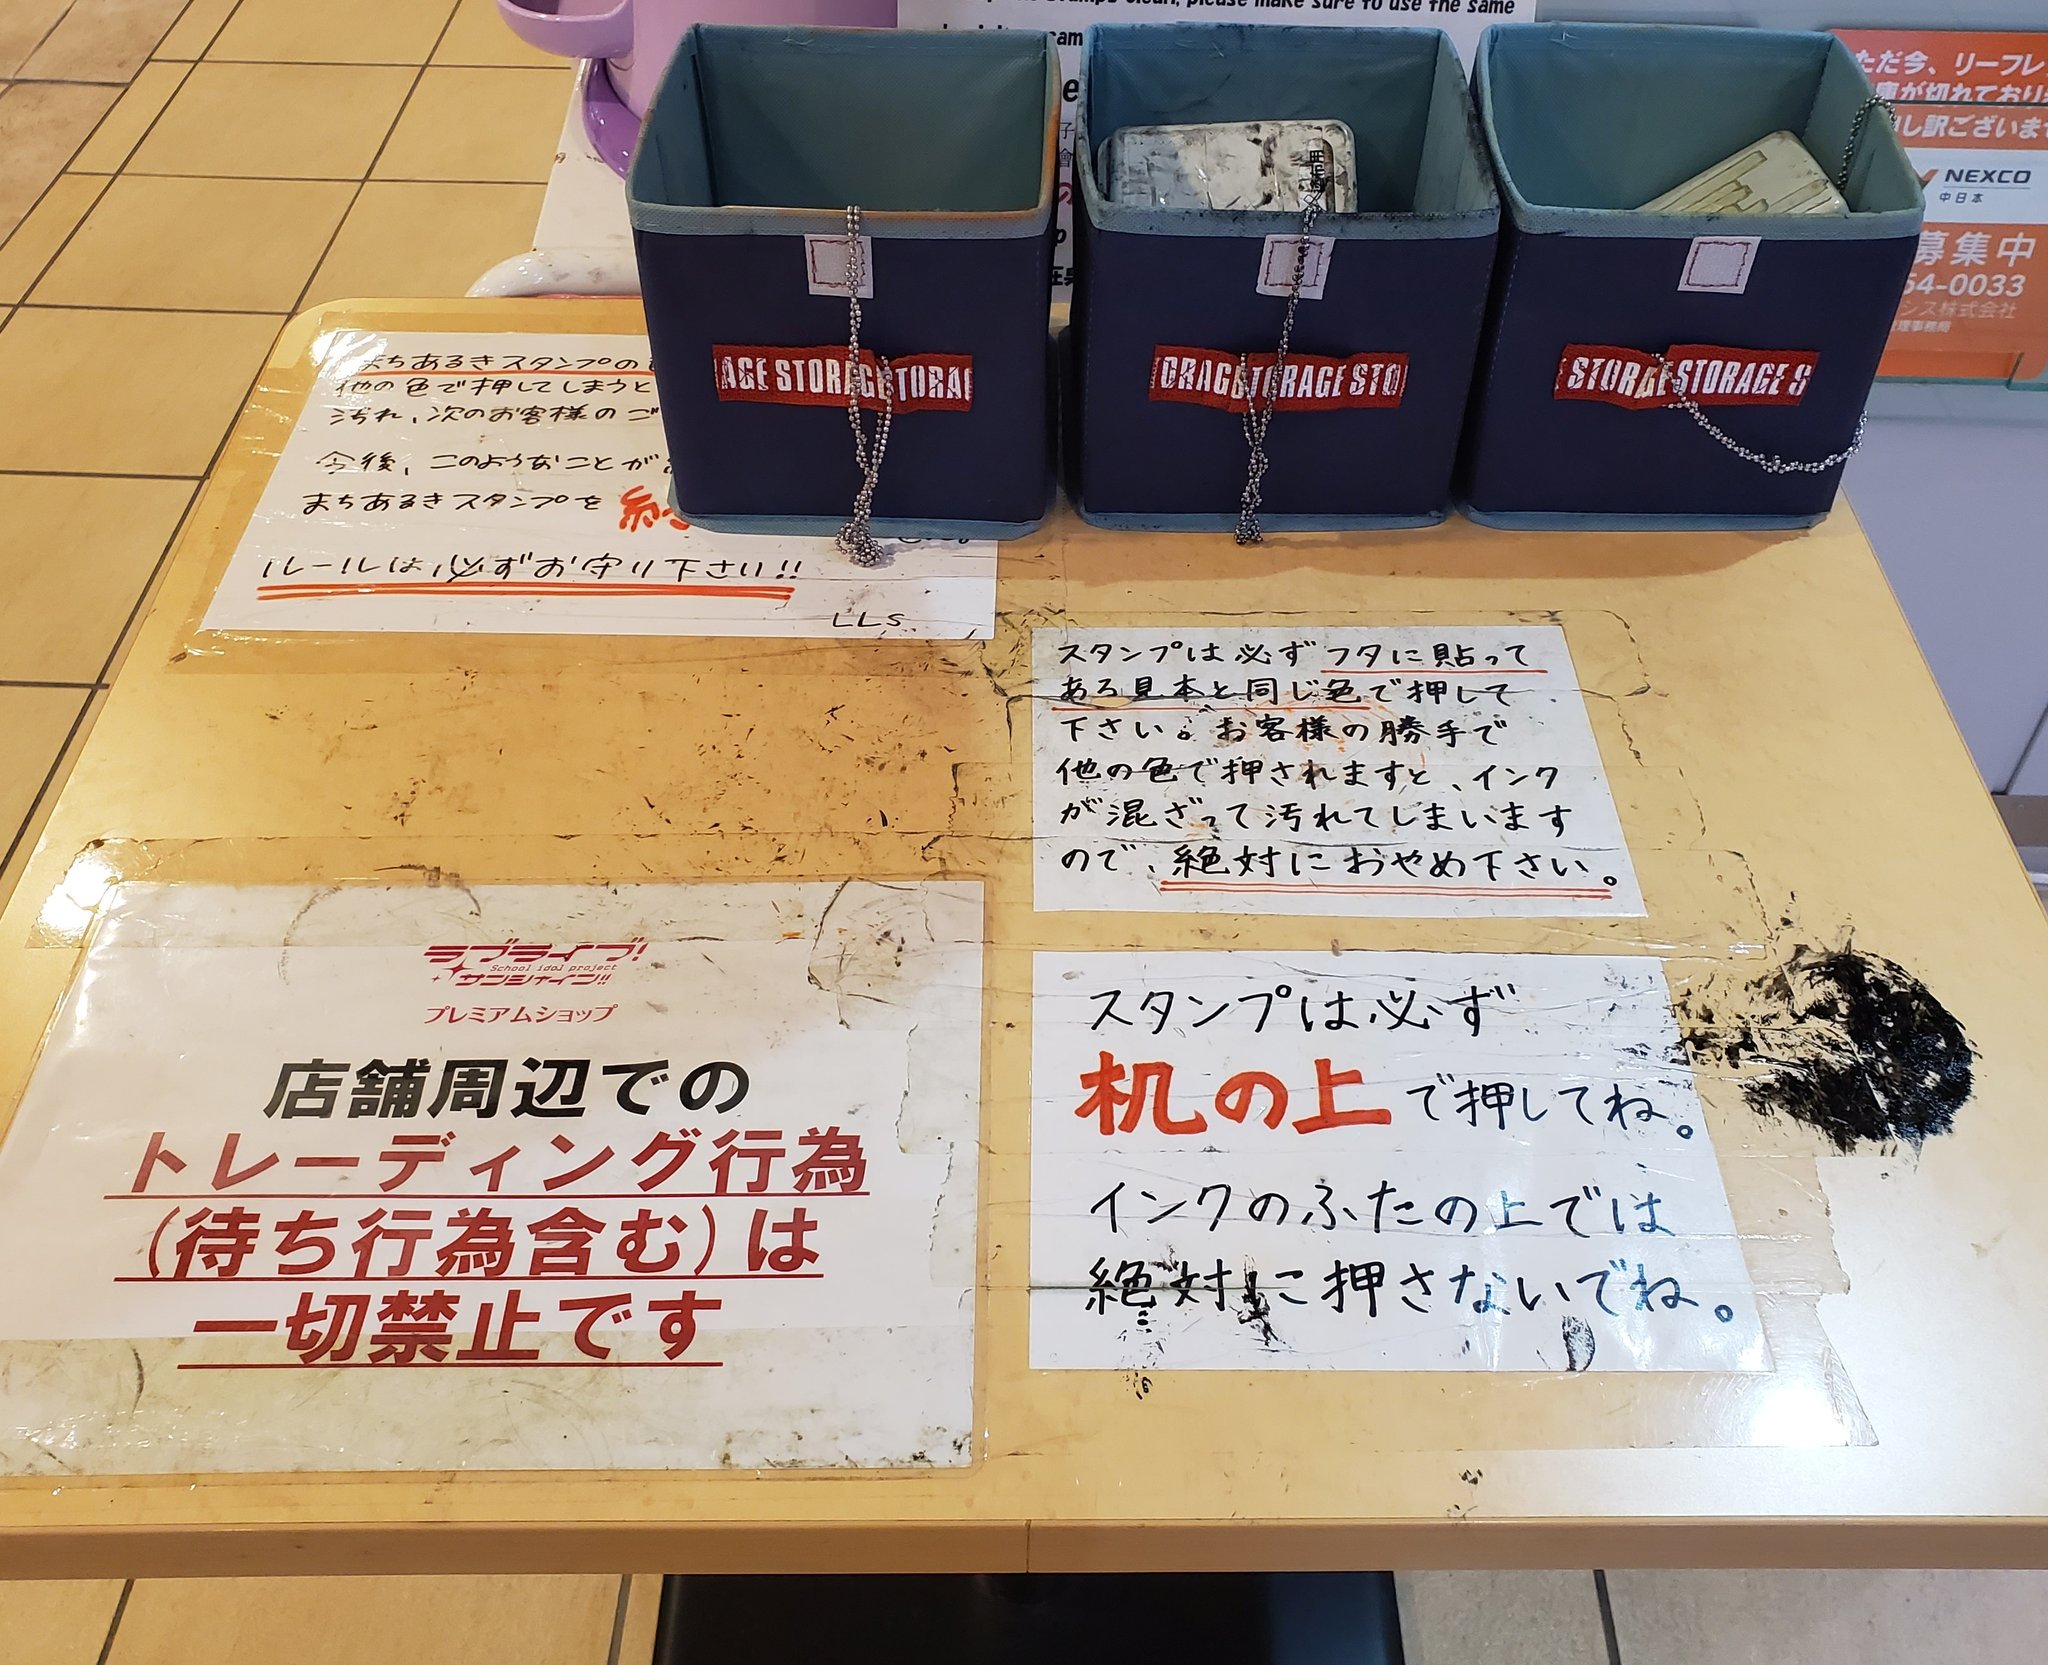 stamps clean, please make sure to use the same
ただ今、リーフレ
庫が切れており
し訳ございませ
NEXCO
中日本
募集中
54-0033
シス株式会社
理事務局
AGE STORAGE STORAG
ORAGE STORAGE STO
STORAGE STORAGE S
まちあるきスタンプの
他の色で押してしまうと
汚れ、次のお客様のご
今後、このようなことが
まちあるきスタンプを
ルールは必ずお守り下さい!!
LLS
スタンプは必ずフタに貼って
ある見本と同じ色で押して
下さい。お客様の勝手で
他の色で押されますと、インク
が混ざって汚れてしまいます
ので、絶対におやめ下さい。
ラブライブ!
School idol project
サンシャイン!!
プレミアムショップ
店舗周辺での
トレーディング行為
(待ち行為含む)は
一切禁止です
スタンプは必ず
机の上で押してね。
インクのふたの上では
絶対に押さないでね。